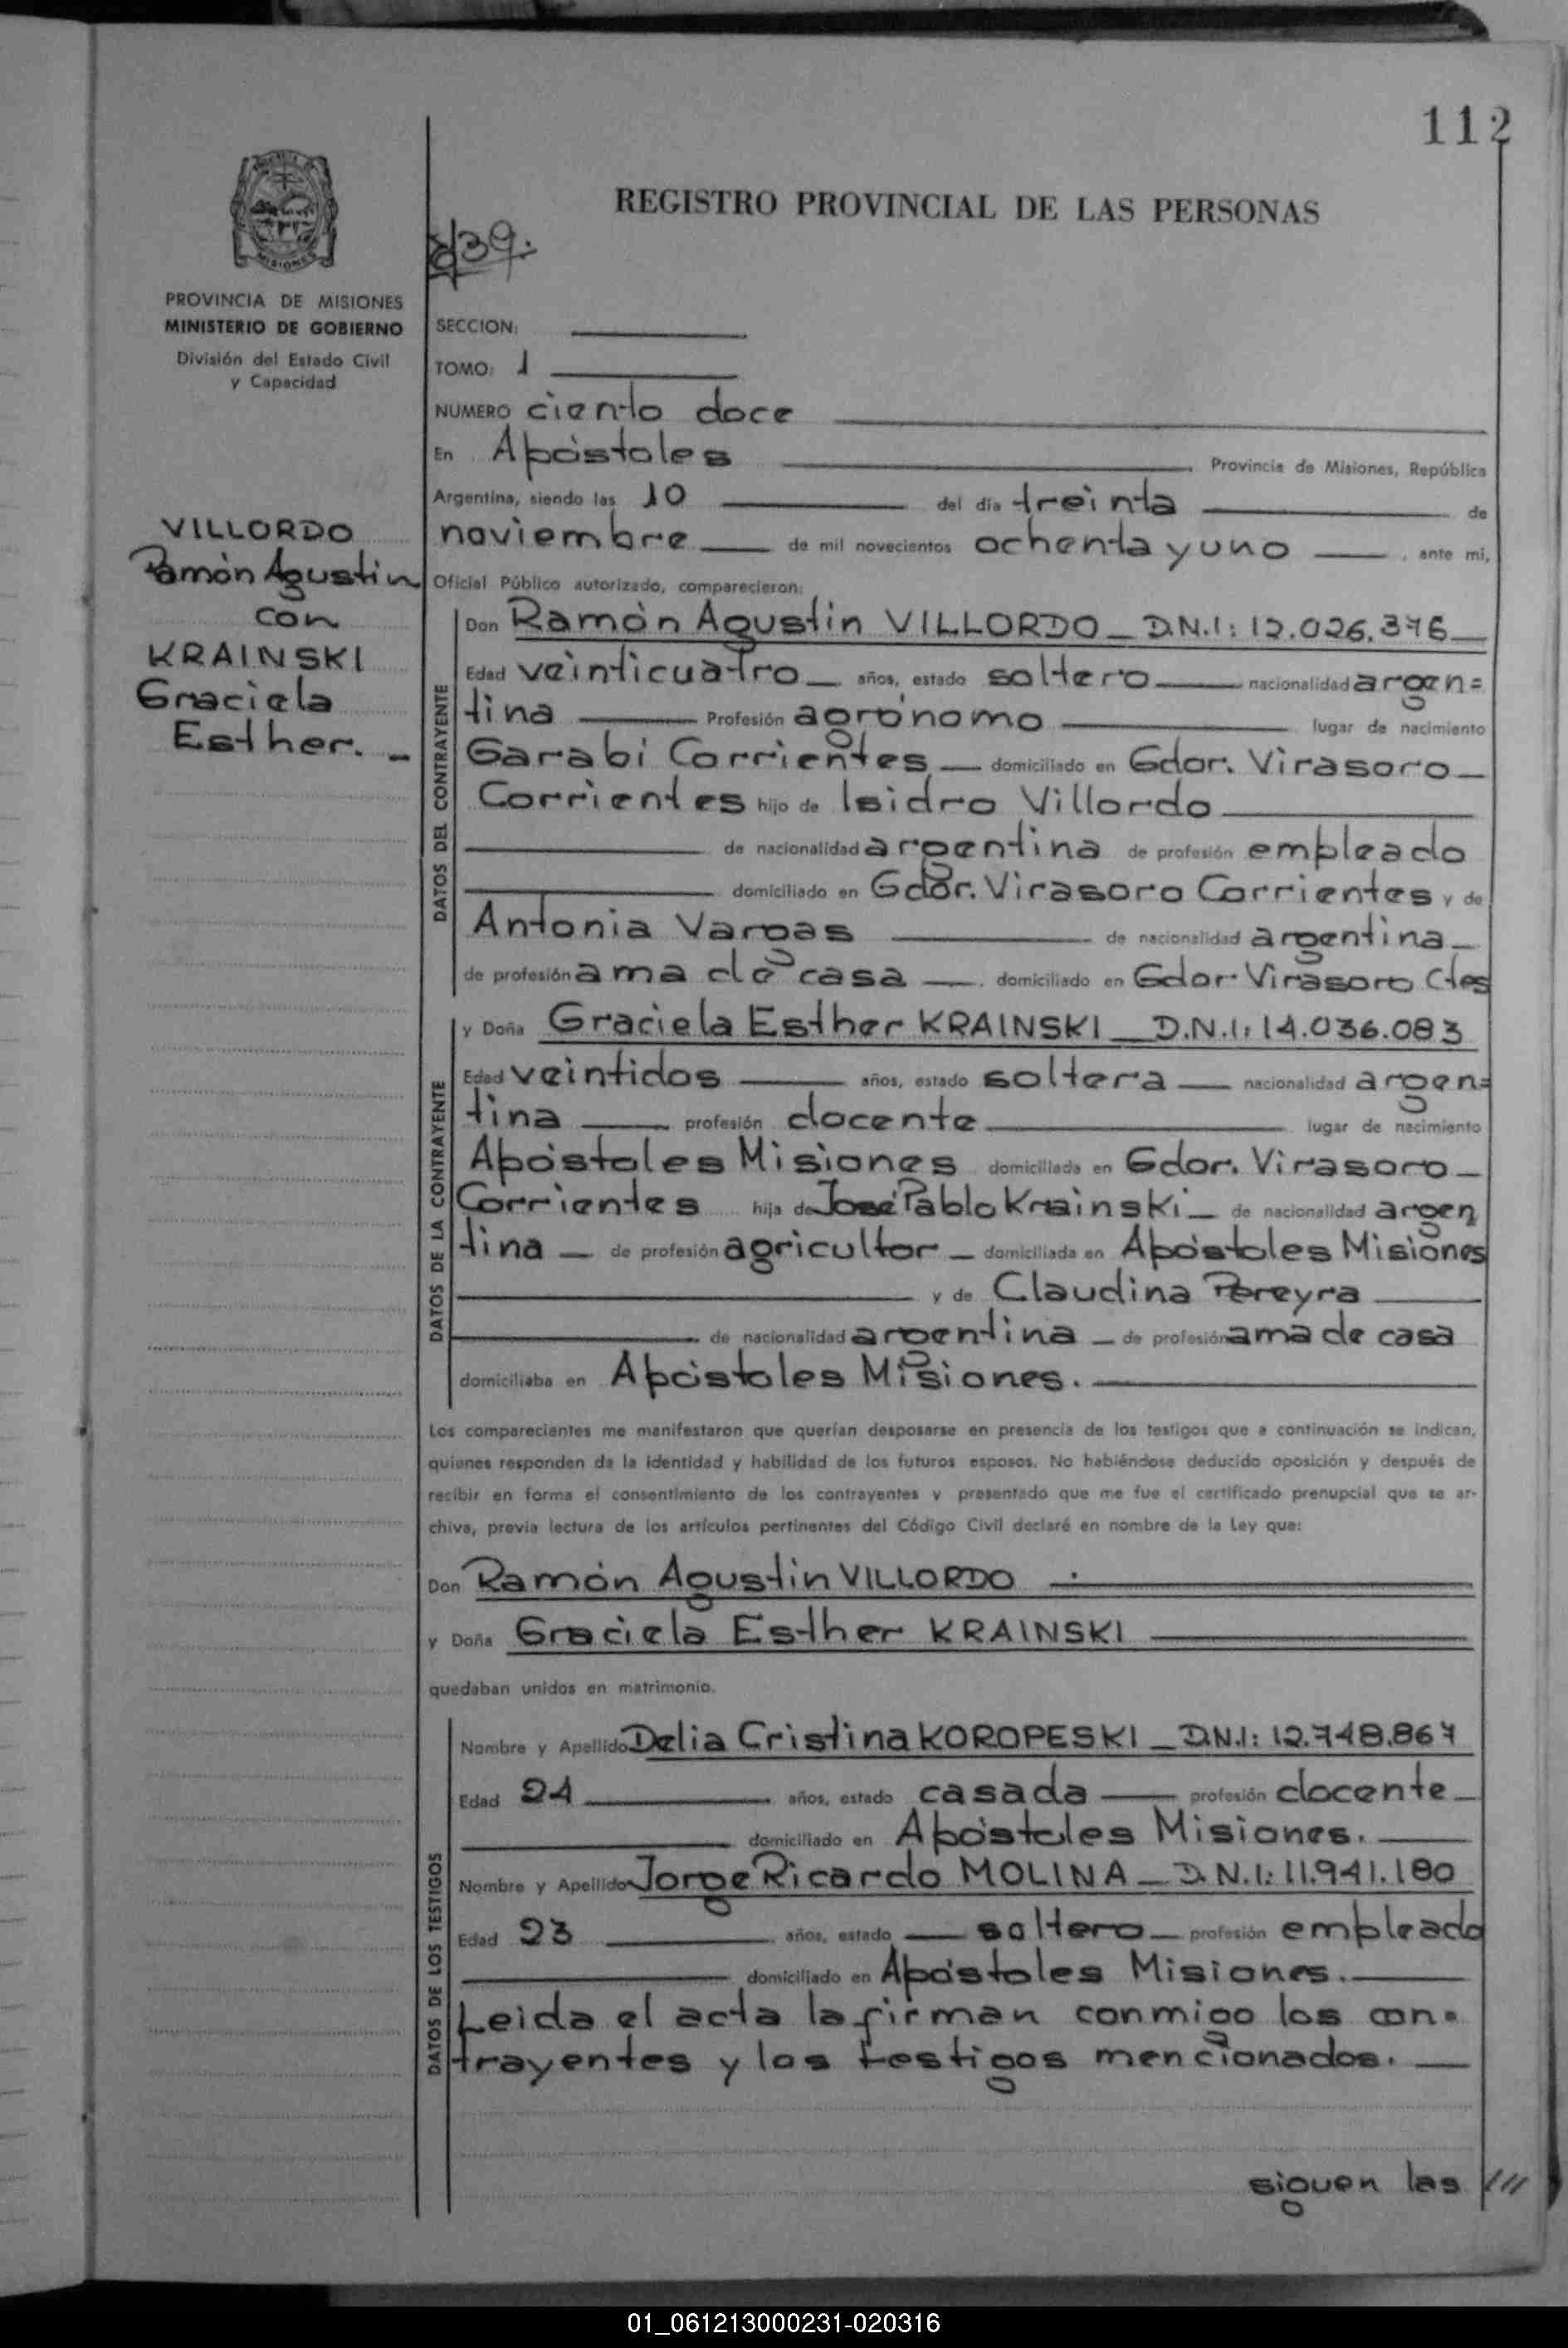 112
REGISTRO PROVINCIAL DE LAS PERSONAS
MISIONES
PROVINCIA DE MISIONES
MINISTERIO DE GOBIERNO
División del Estado Civil
y Capacidad
SECCION:
TOMO: 1
NUMERO ciento doce
En Apóstoles Provincia de Misiones, República
Argentina, siendo las 10 del día treinta de
noviembre de mil novecientos ochenta y uno , ante mi,
Oficial Público autorizado, comparecieron:
VILLORDO
Ramón Agustin
con
KRAINSKI
Graciela
Esther. -
DATOS DEL CONTRAYENTE
Don Ramón Agustin VILLORDO _ D.N.I: 12.026.376
Edad veinticuatro años, estado soltero nacionalidad argen=
tina Profesión agrónomo lugar de nacimiento
Garabi Corrientes domiciliado en Gdor. Virasoro
Corrientes hijo de Isidro Villordo
de nacionalidad argentina de profesión empleado
domiciliado en Gdor. Virasoro Corrientes y de
Antonia Vargas de nacionalidad argentina
de profesión ama de casa domiciliado en Gdor Virasoro Ctes
DATOS DE LA CONTRAYENTE
y Doña Graciela Esther KRAINSKI _ D.N.I: 14.036.083
Edad veintidos años, estado soltera nacionalidad argen=
tina profesión docente lugar de nacimiento
Apóstoles Misiones domiciliada en Gdor. Virasoro
Corrientes hija de José Pablo Krainski de nacionalidad argen
tina de profesión agricultor domiciliada en Apóstoles Misiones
y de Claudina Pereyra
de nacionalidad argentina de profesión ama de casa
domiciliaba en Apóstoles Misiones.
Los comparecientes me manifestaron que querían desposarse en presencia de los testigos que a continuación se indican,
quienes responden de la identidad y habilidad de los futuros esposos. No habiéndose deducido oposición y después de
recibir en forma el consentimiento de los contrayentes y presentado que me fue el certificado prenupcial que se ar-
chiva, previa lectura de los artículos pertinentes del Código Civil declaré en nombre de la Ley que:
Don Ramón Agustin VILLORDO
y Doña Graciela Esther KRAINSKI
quedaban unidos en matrimonio.
DATOS DE LOS TESTIGOS
Nombre y Apellido Delia Cristina KOROPESKI _ D.N.I: 12.748.867
Edad 24 años, estado casada profesión docente
domiciliado en Apóstoles Misiones.
Nombre y Apellido Jorge Ricardo MOLINA _ D.N.I: 11.941.180
Edad 23 años, estado soltero profesión empleado
domiciliado en Apóstoles Misiones.
Leida el acta la firman conmigo los con=
trayentes y los testigos mencionados.
siguen las ///
01_061213000231-020316